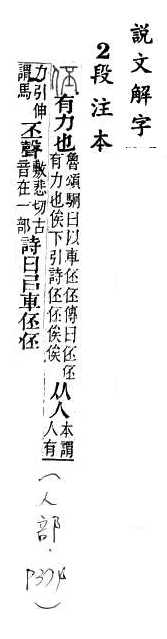 説文解字
2段注本
伾 有力也 魯頌駉曰以車伾伾傳曰伾伾有力也俟下引詩伾伾俟俟 从人 本謂人有
力引伸謂馬 丕聲 敷悲切古音在一部 詩曰㠯車伾伾
(人部. P374)